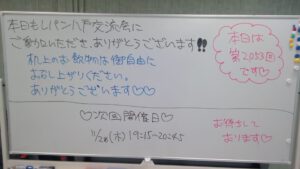 本日もしパン八戸交流会に
ご参加いただき、ありがとうございます!!
机上のお飲物は御自由に
お召し上がりください。
ありがとうございます♡♡
本日は
第2053回
です♡
♡次回開催日♡
(木) 19:15~20:45
お待ちして
おります♡